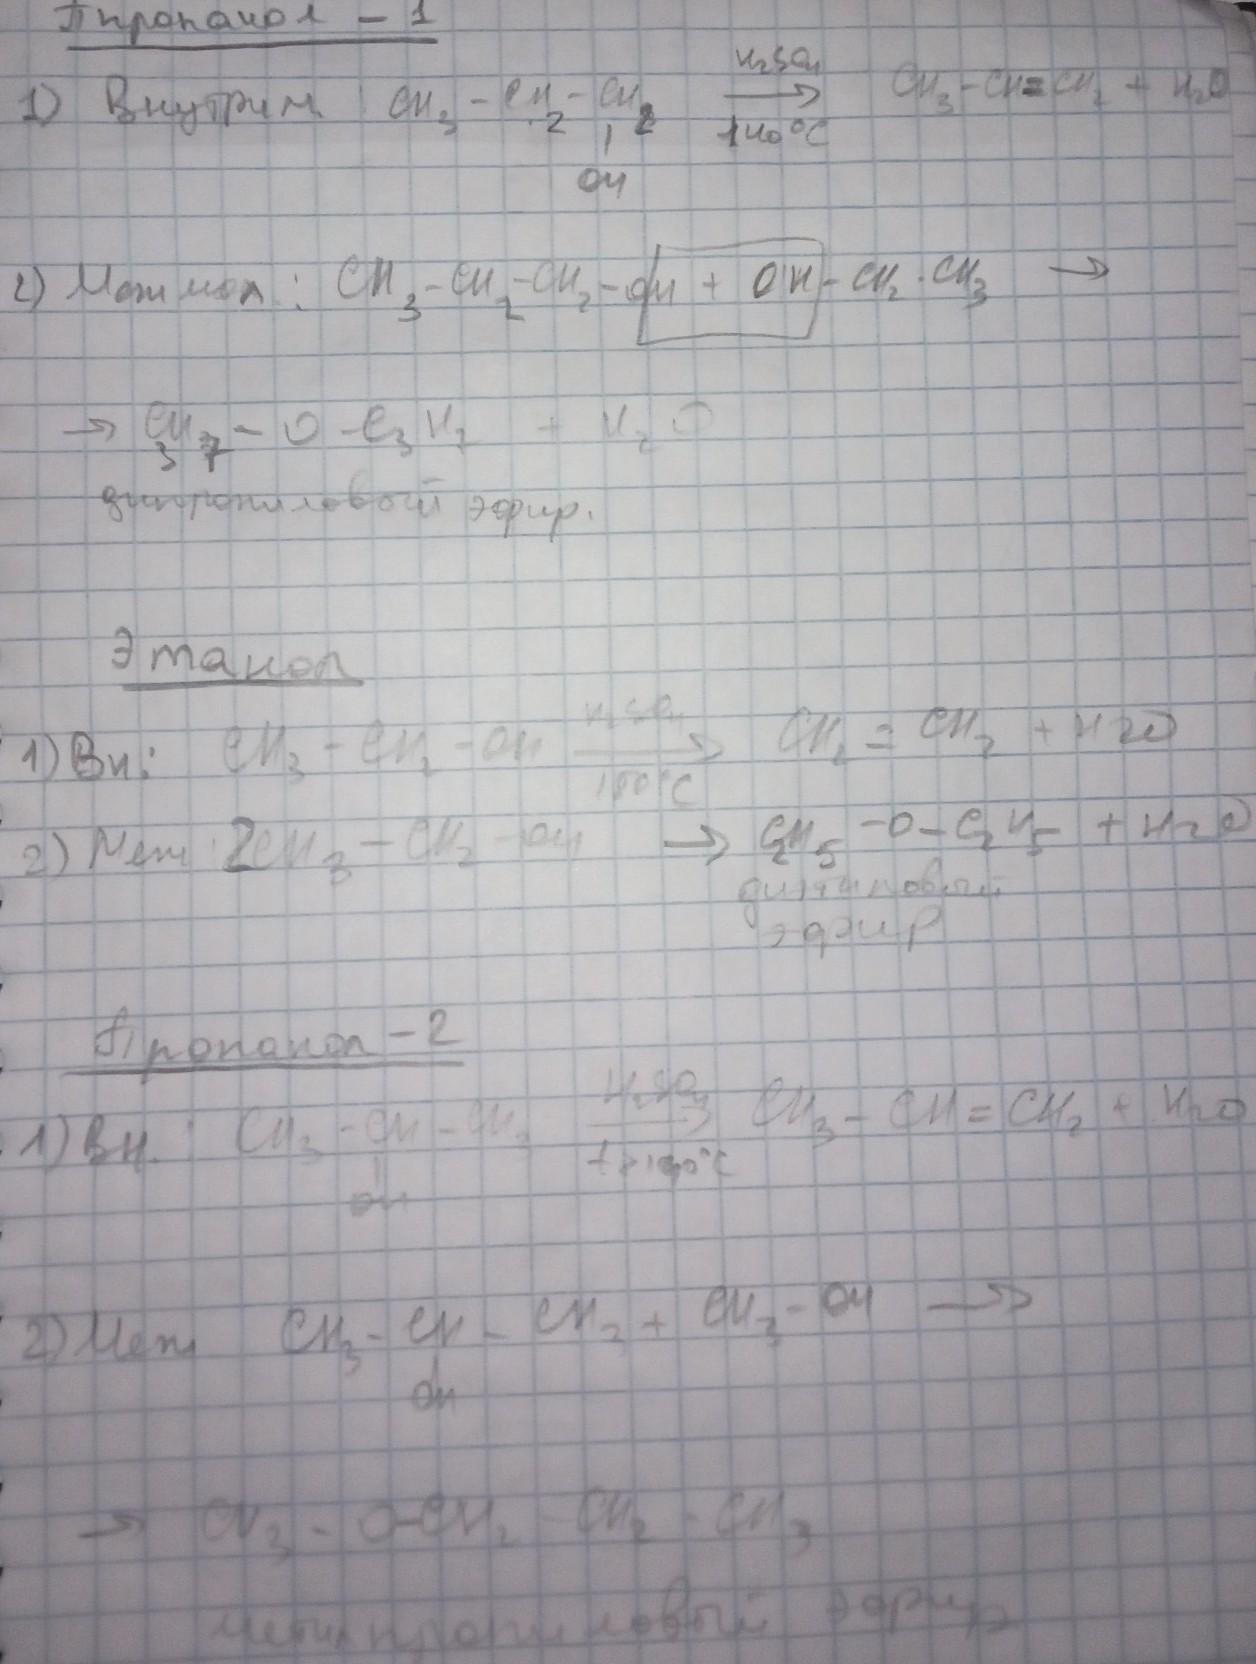 Пропанол - 1
1) Внутрим CH3 - CH2 - CH2 H2SO4 → 140°C CH3 - CH = CH2 + H2O
OH
2) Межмол: CH3 - CH2 - CH2 - OH + OH - CH2 - CH3 →
→ C3H7 - O - C3H7 + H2O
дипропиловый эфир.
Этанол
1) Вн: CH3 - CH2 - OH H2SO4 → CH2 = CH2 + H2O
2) Меж: 2CH3 - CH2 - OH → C2H5 - O - C2H5 + H2O
диэтиловый
эфир
Пропанол - 2
1) Вн: CH3 - CH - CH3 H2SO4 → CH3 - CH = CH2 + H2O
OH
2) Меж CH3 - CH - CH2 + CH3 - OH →
OH
→ CH3 - O - CH2 - CH2 - CH3
метилпропиловый эфир